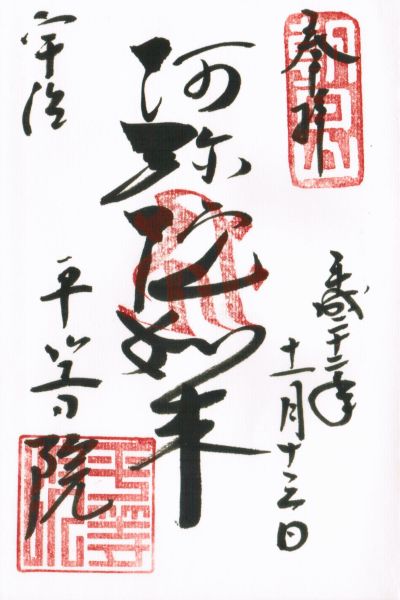 奉拝
平成二十二年
十一月十三日
阿弥陀如来
宇治
平等院